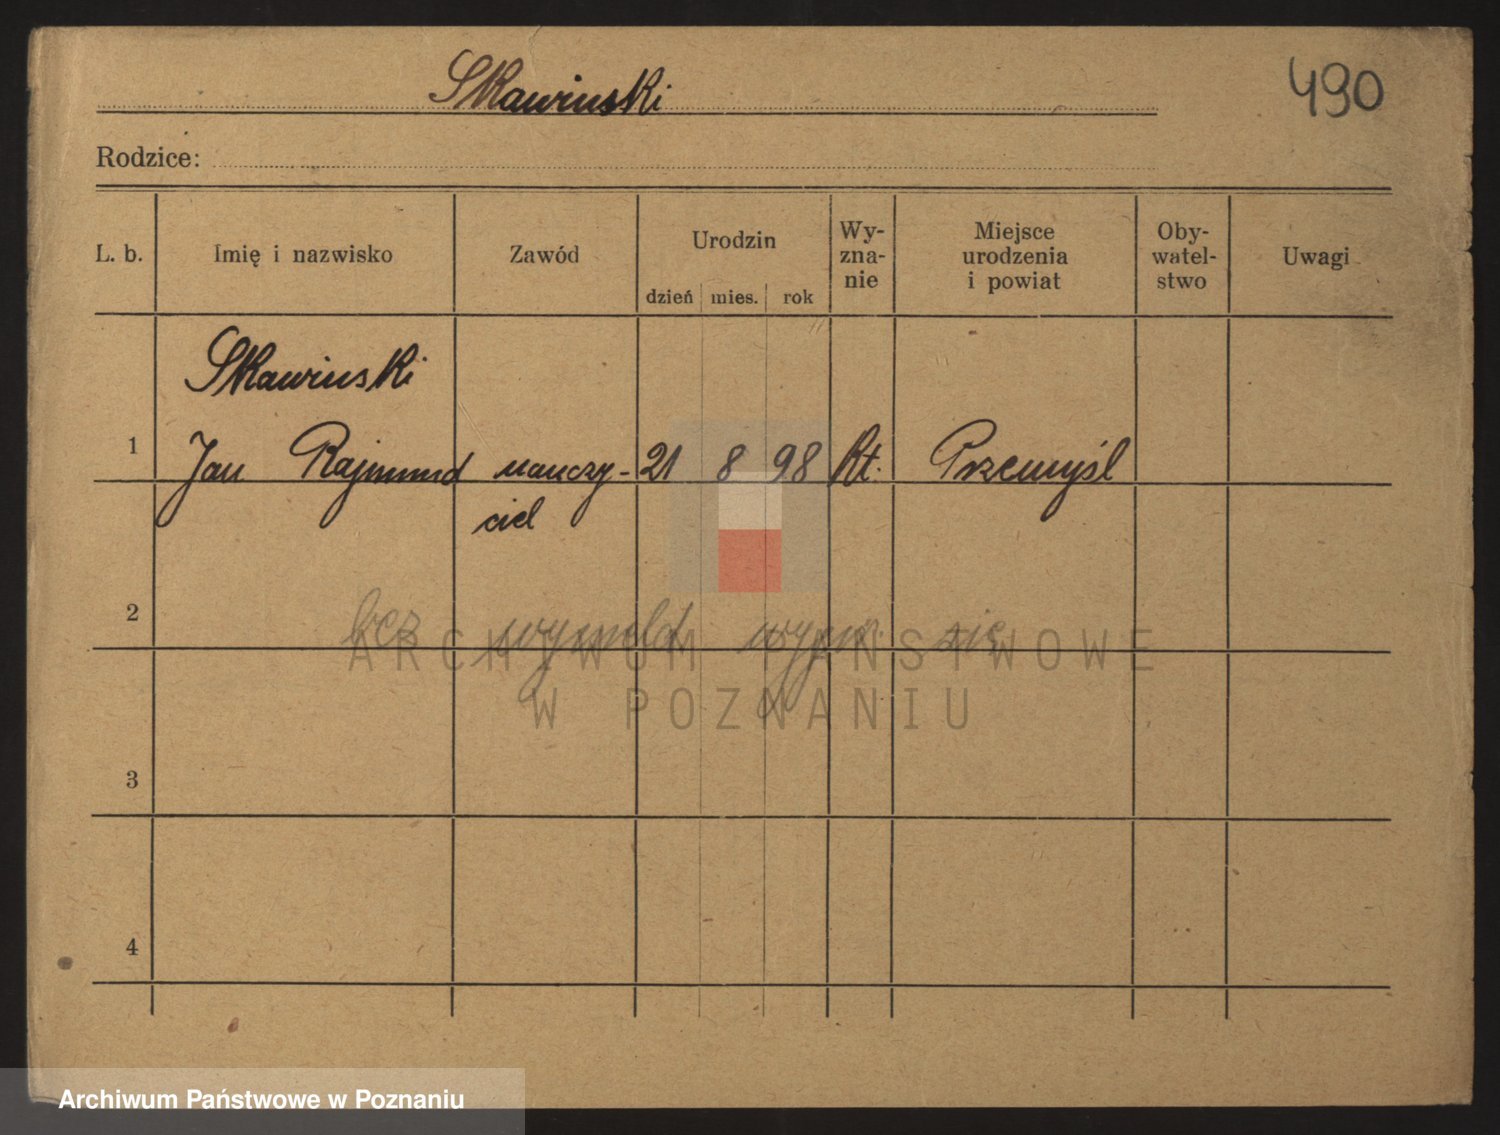 Skawinski
490
Rodzice:
L. b. Imię i nazwisko Zawód Urodzin dzień mies. rok Wy-
zna-
nie Miejsce
urodzenia
i powiat Oby-
watel-
stwo Uwagi
Skawinski
1 Jan Rajmund nauczy- 21 8 98 Rt. Przemyśl
ciel
2
bez wymeld wypr. się
ARCHIWUM PAŃSTWOWE
W POZNANIU
3
4
Archiwum Państwowe w Poznaniu